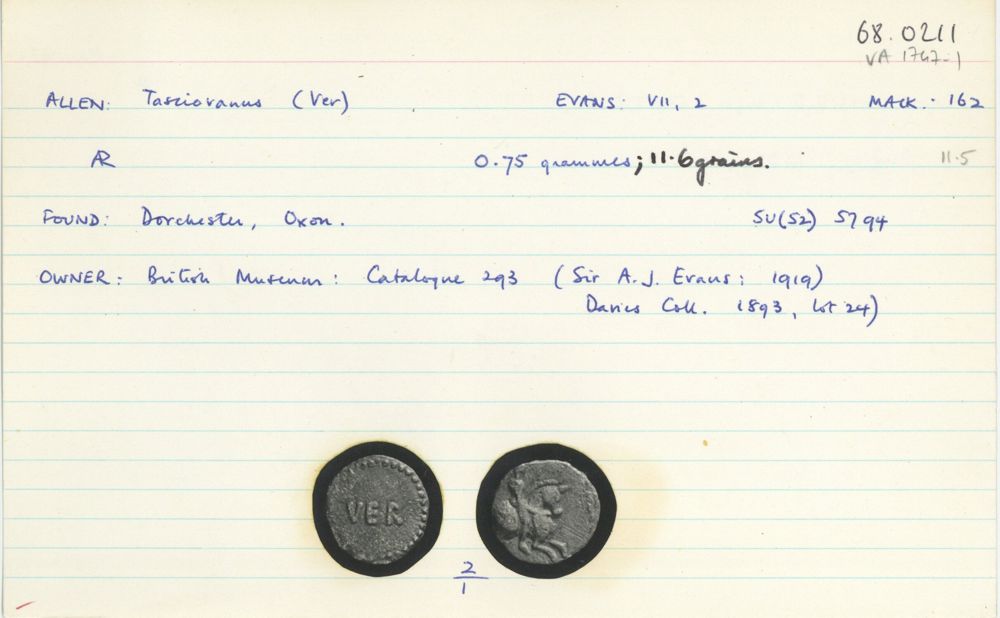 68.0211
VA 1747-1
ALLEN: Tasciovanus (Ver) EVANS: VII, 2 MACK: 162
AR 0.75 grammes; 11.6 grains. 11.5
FOUND: Dorchester, Oxon. SU(52) 5794
OWNER: British Museum: Catalogue 293 (Sir A.J. Evans: 1919)
Davies Coll. 1893, lot 24)
VER
2
1